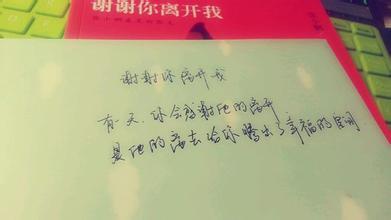 谢谢你离开我
谢谢你离开我
有一天,你会感谢他的离开
是他的离去给你腾出了幸福的空间